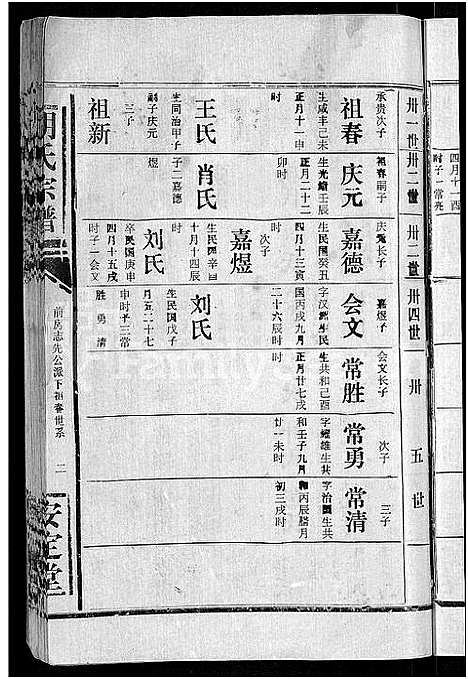 四月十一酉
时子一常亮
卅一世
卅二世
卅三世
卅四世
卅五世
承贵次子
祖春
生咸丰己未
正月十一申
时
王氏
生同治甲子
嗣子庆元
三子
祖新
祖春嗣子
庆元
生光绪壬辰
正月二十二
卯时
肖氏
子二嘉德
煜
庆元长子
嘉德
生民国癸丑
四月十三寅
时
次子
嘉煜
生民国辛酉
十月十四辰
刘氏
辛民国庚申
四月十五戌
时子一会文
嘉煜子
会文
字汉洲生民
国丙戌九月
二十六辰时
刘氏
生民国戊子
五月二十七
申时子三常
胜勇清
会文长子
常胜
生共和己酉
正月廿七戌
时
次子
常勇
字耀雄生共
和壬子九月
廿一未时
三子
常清
字治国生共
和丙辰腊月
初三戌时
胡氏宗谱
前房志先公派下祖春世系
二
安定堂